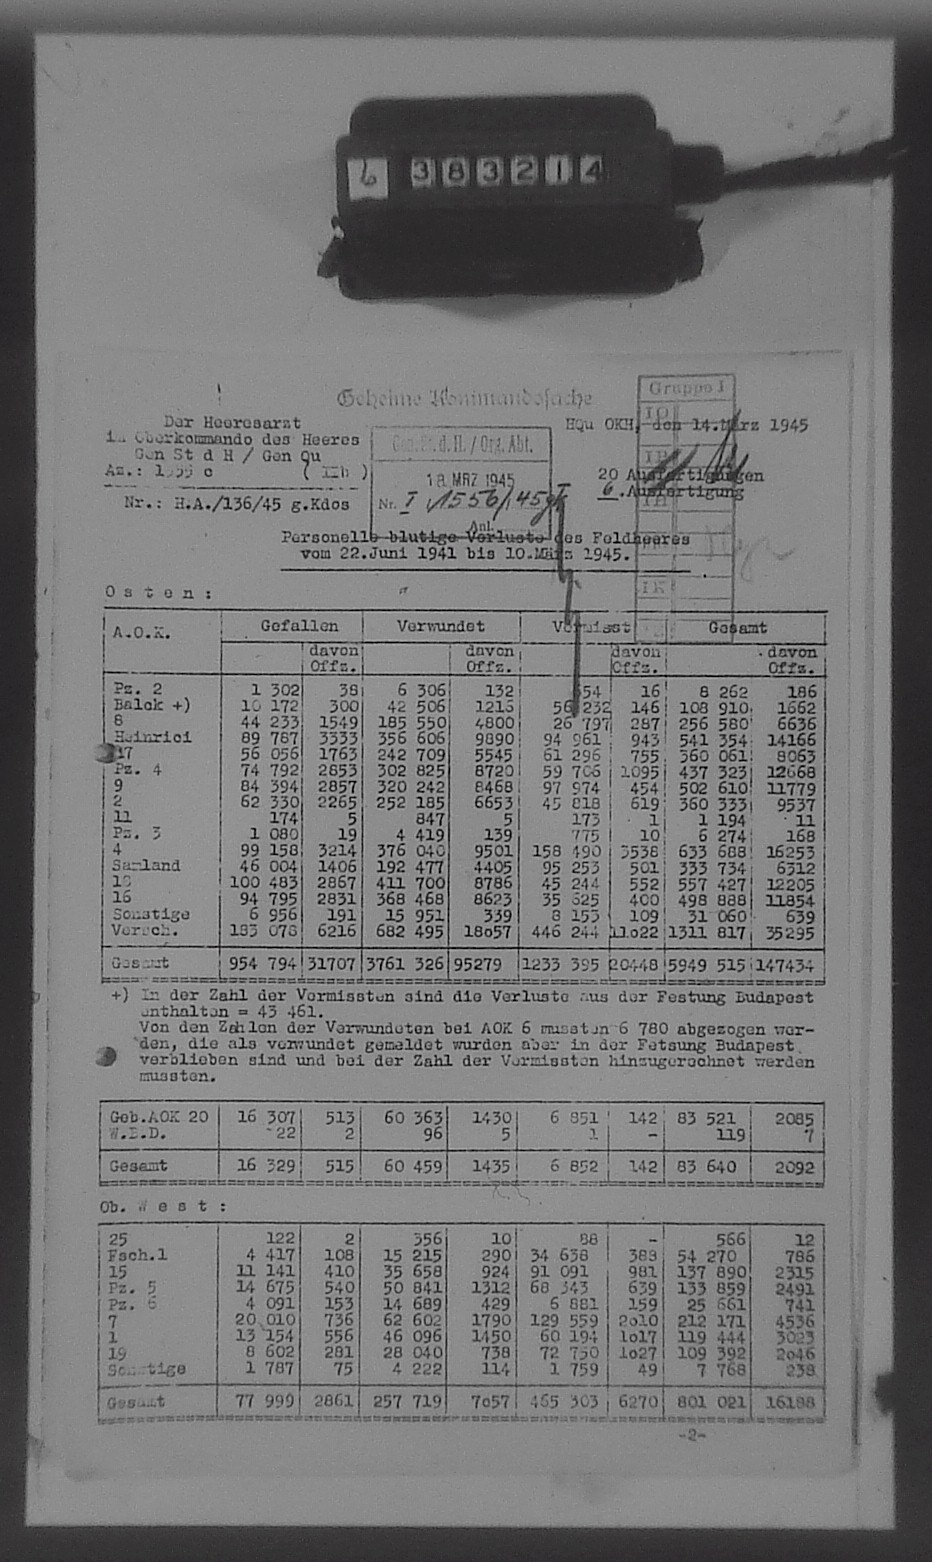 6 383214
Geheime Kommandosache
Gruppe I
Der Heeresarzt
HQu OKH, den 14.März 1945
im Oberkommando des Heeres
Gen St d H / Gen Qu
Gen.St.d.H. / Org. Abt.
Az.: 1335 c (IIb)
18. MRZ 1945
20 Ausfertigungen
6. Ausfertigung
Nr.: H.A./136/45 g.Kdos
Nr. I 1556/45 gK
Anl.
Personelle blutige Verluste des Feldheeres
vom 22.Juni 1941 bis 10.März 1945.
Osten:
A.O.K. Gefallen Verwundet Vermisst Gesamt
davon Offz. davon Offz. davon Offz. davon Offz.
Pz. 2 1 302 38 6 306 132 654 16 8 262 186
Balck +) 10 172 300 42 506 1216 56 232 146 108 910 1662
8 44 233 1549 185 550 4800 26 797 287 256 580 6636
Heinrici 89 787 3333 356 606 9890 94 961 943 541 354 14166
17 56 056 1763 242 709 5545 61 296 755 360 061 8063
Pz. 4 74 792 2853 302 825 8720 59 706 1095 437 323 12668
9 84 394 2857 320 242 8468 97 974 454 502 610 11779
2 62 330 2265 252 185 6653 45 818 619 360 333 9537
11 174 5 847 5 173 1 1 194 11
Pz. 3 1 080 19 4 419 139 775 10 6 274 168
4 99 158 3214 376 040 9501 158 490 3538 633 688 16253
Samland 46 004 1406 192 477 4405 95 253 501 333 734 6312
18 100 483 2867 411 700 8786 45 244 552 557 427 12205
16 94 795 2831 368 468 8623 35 625 400 498 888 11854
Sonstige 6 956 191 15 951 339 8 153 109 31 060 639
Versch. 183 078 6216 682 495 18o57 446 244 11o22 1311 817 35295
Gesamt 954 794 31707 3761 326 95279 1233 395 20448 5949 515 147434
+) In der Zahl der Vermissten sind die Verluste aus der Festung Budapest
enthalten = 43 461.
Von den Zahlen der Verwundeten bei AOK 6 mussten 6 780 abgezogen wer-
den, die als verwundet gemeldet wurden aber in der Fetsung Budapest
verblieben sind und bei der Zahl der Vermissten hinzugerechnet werden
mussten.
Geb.AOK 20 16 307 513 60 363 1430 6 851 142 83 521 2085
W.B.D. 22 2 96 5 1 - 119 7
Gesamt 16 329 515 60 459 1435 6 852 142 83 640 2092
Ob. West:
25 122 2 356 10 88 - 566 12
Fsch.1 4 417 108 15 215 290 34 638 388 54 270 786
15 11 141 410 35 658 924 91 091 981 137 890 2315
Pz. 5 14 675 540 50 841 1312 68 343 639 133 859 2491
Pz. 6 4 091 153 14 689 429 6 881 159 25 661 741
7 20 010 736 62 602 1790 129 559 2o10 212 171 4536
1 13 154 556 46 096 1450 60 194 1o17 119 444 3023
19 8 602 281 28 040 738 72 750 1o27 109 392 2o46
Sonstige 1 787 75 4 222 114 1 759 49 7 768 238
Gesamt 77 999 2861 257 719 7o57 465 303 6270 801 021 16188
-2-